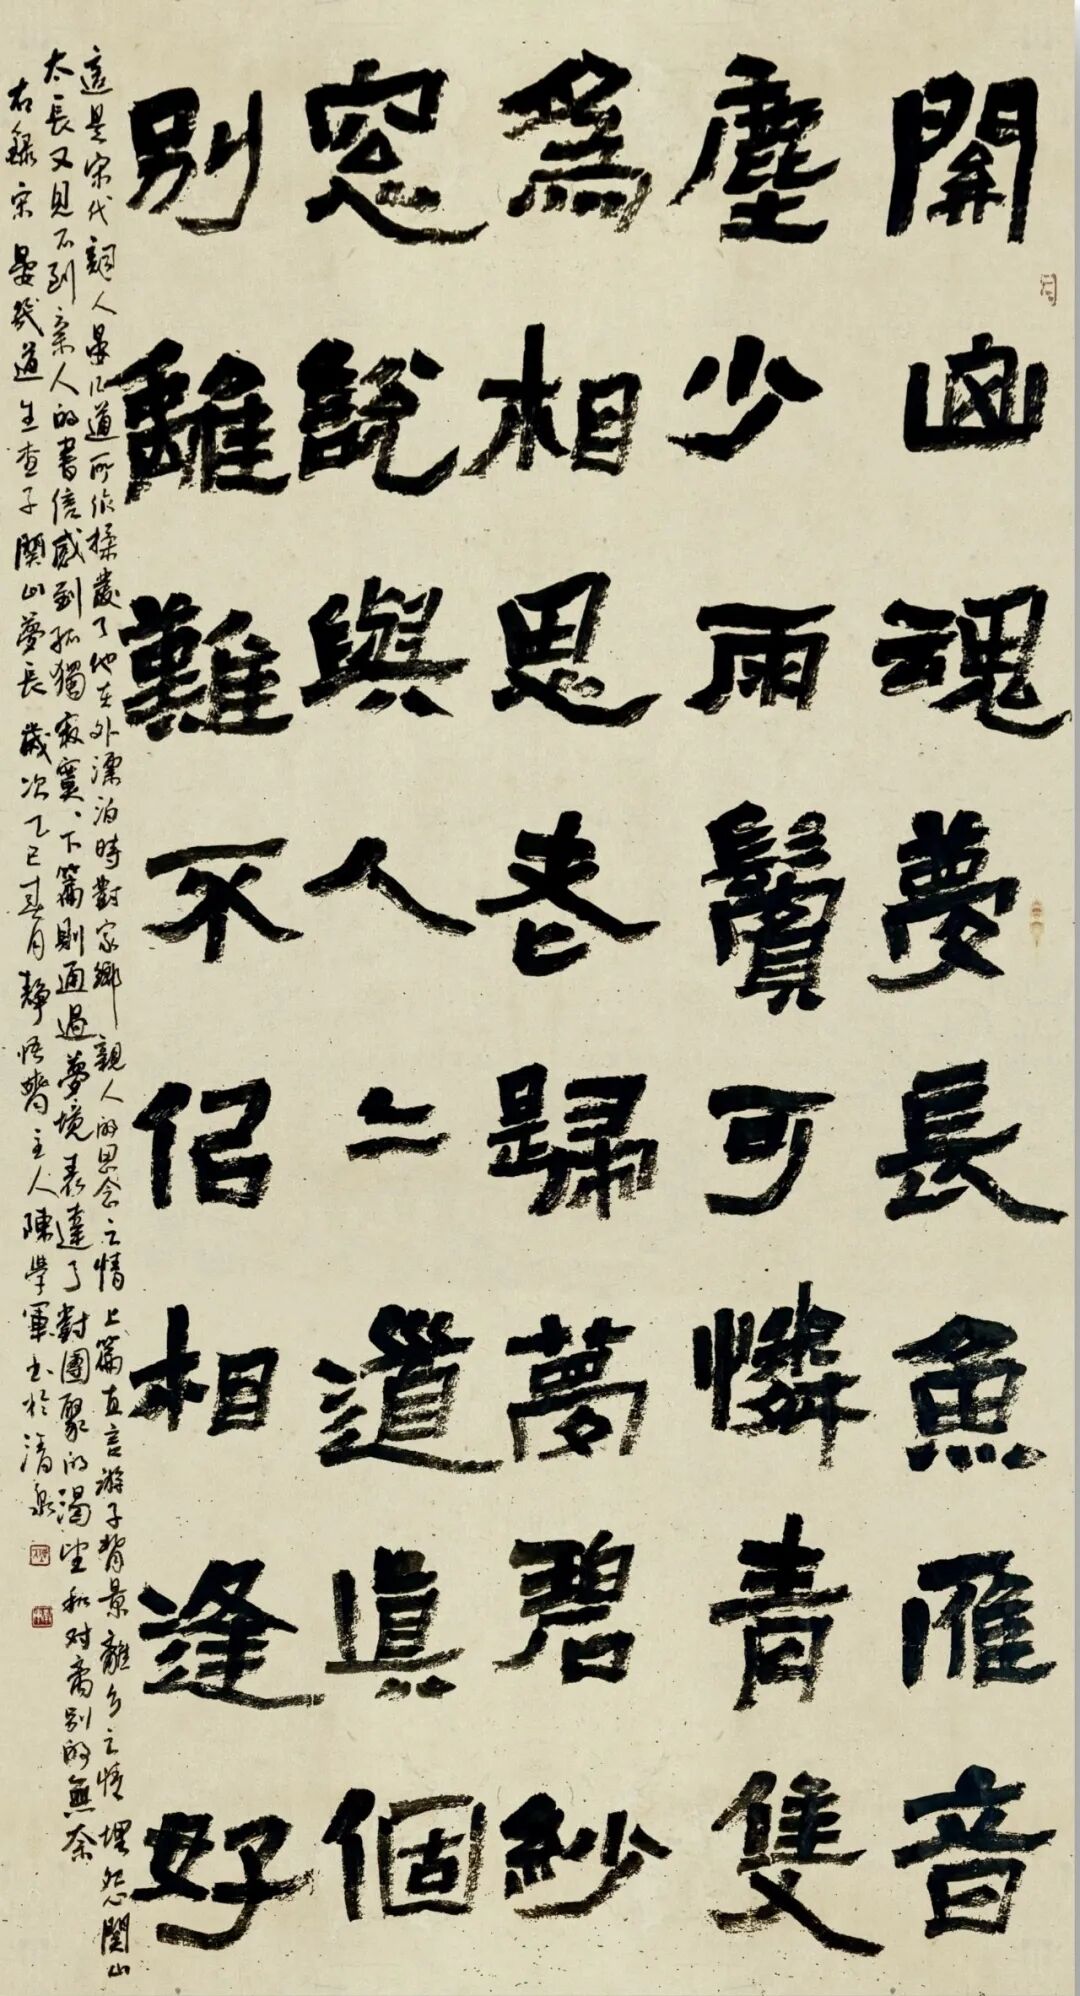 關山魂夢長魚雁音
塵少兩鬢可憐青隻
為相思老歸夢碧紗
窓說與人〻道真個
別離難不侣相逢好
這是宋代詞人晏几道所作抒發了他在外漂泊時對家鄉親人的思念之情上篇直言游子背景離乡之情埋怨関山
太長又見不到亲人的書信感到孤獨寂寞、下篇則通過夢境表達了對團聚的渴望和对离别的無奈
右錄宋晏幾道生查子関山夢長歲次乙巳春月靜悟齋主人陳學軍书於清泉